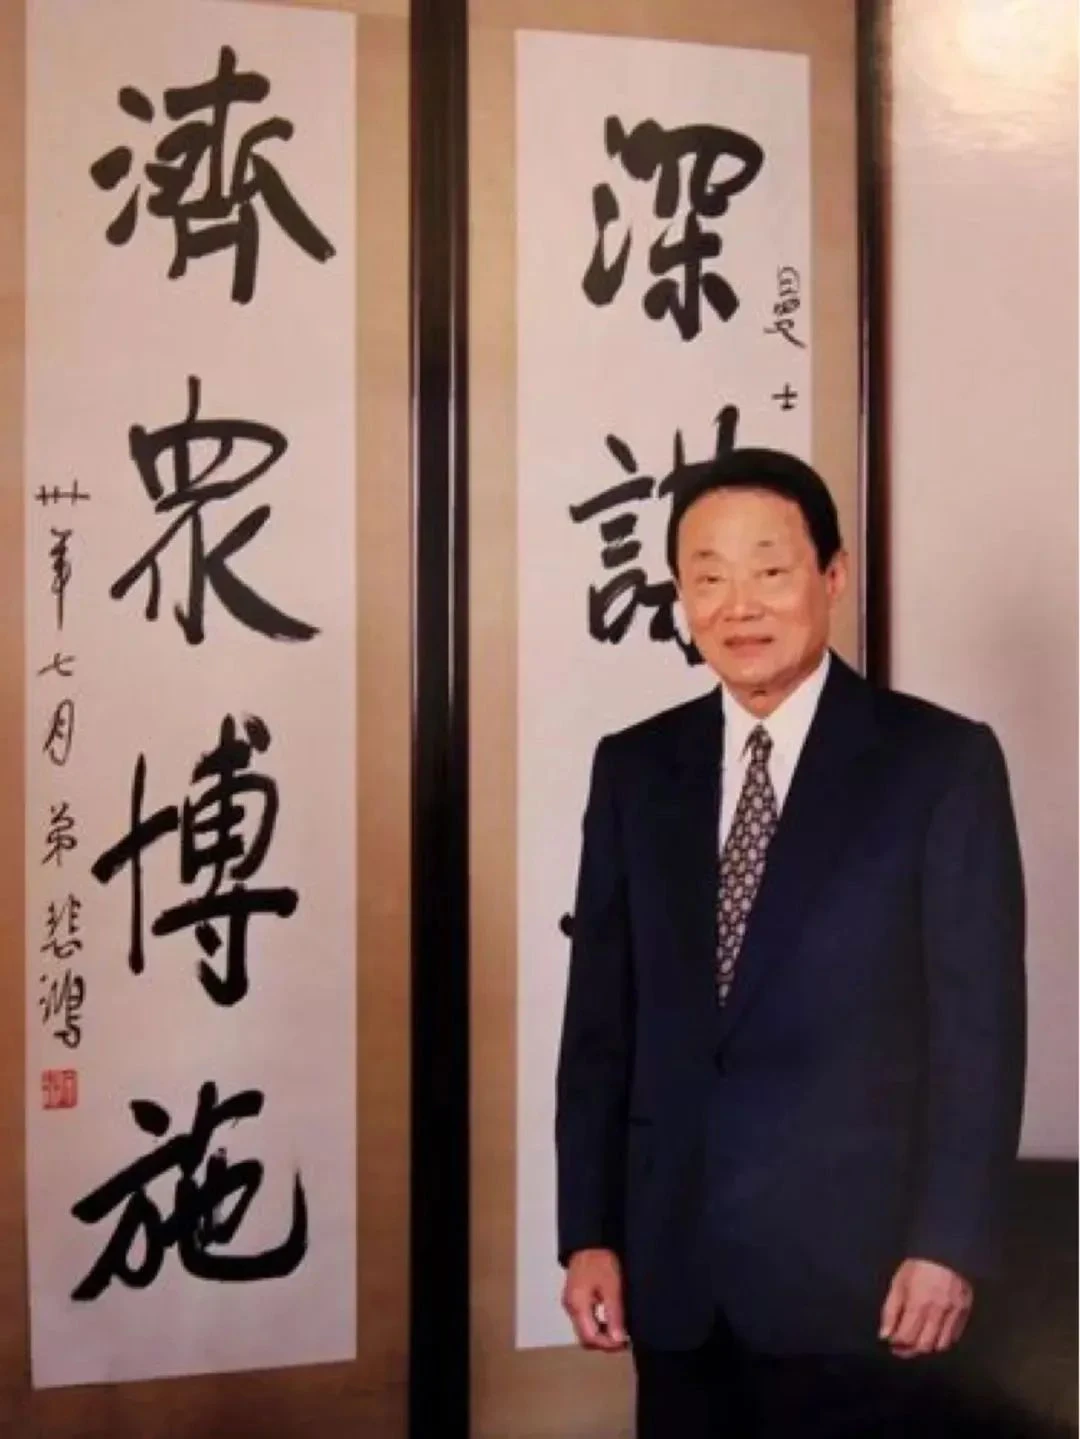 深謀
士
濟眾博施
卅年七月弟悲鴻